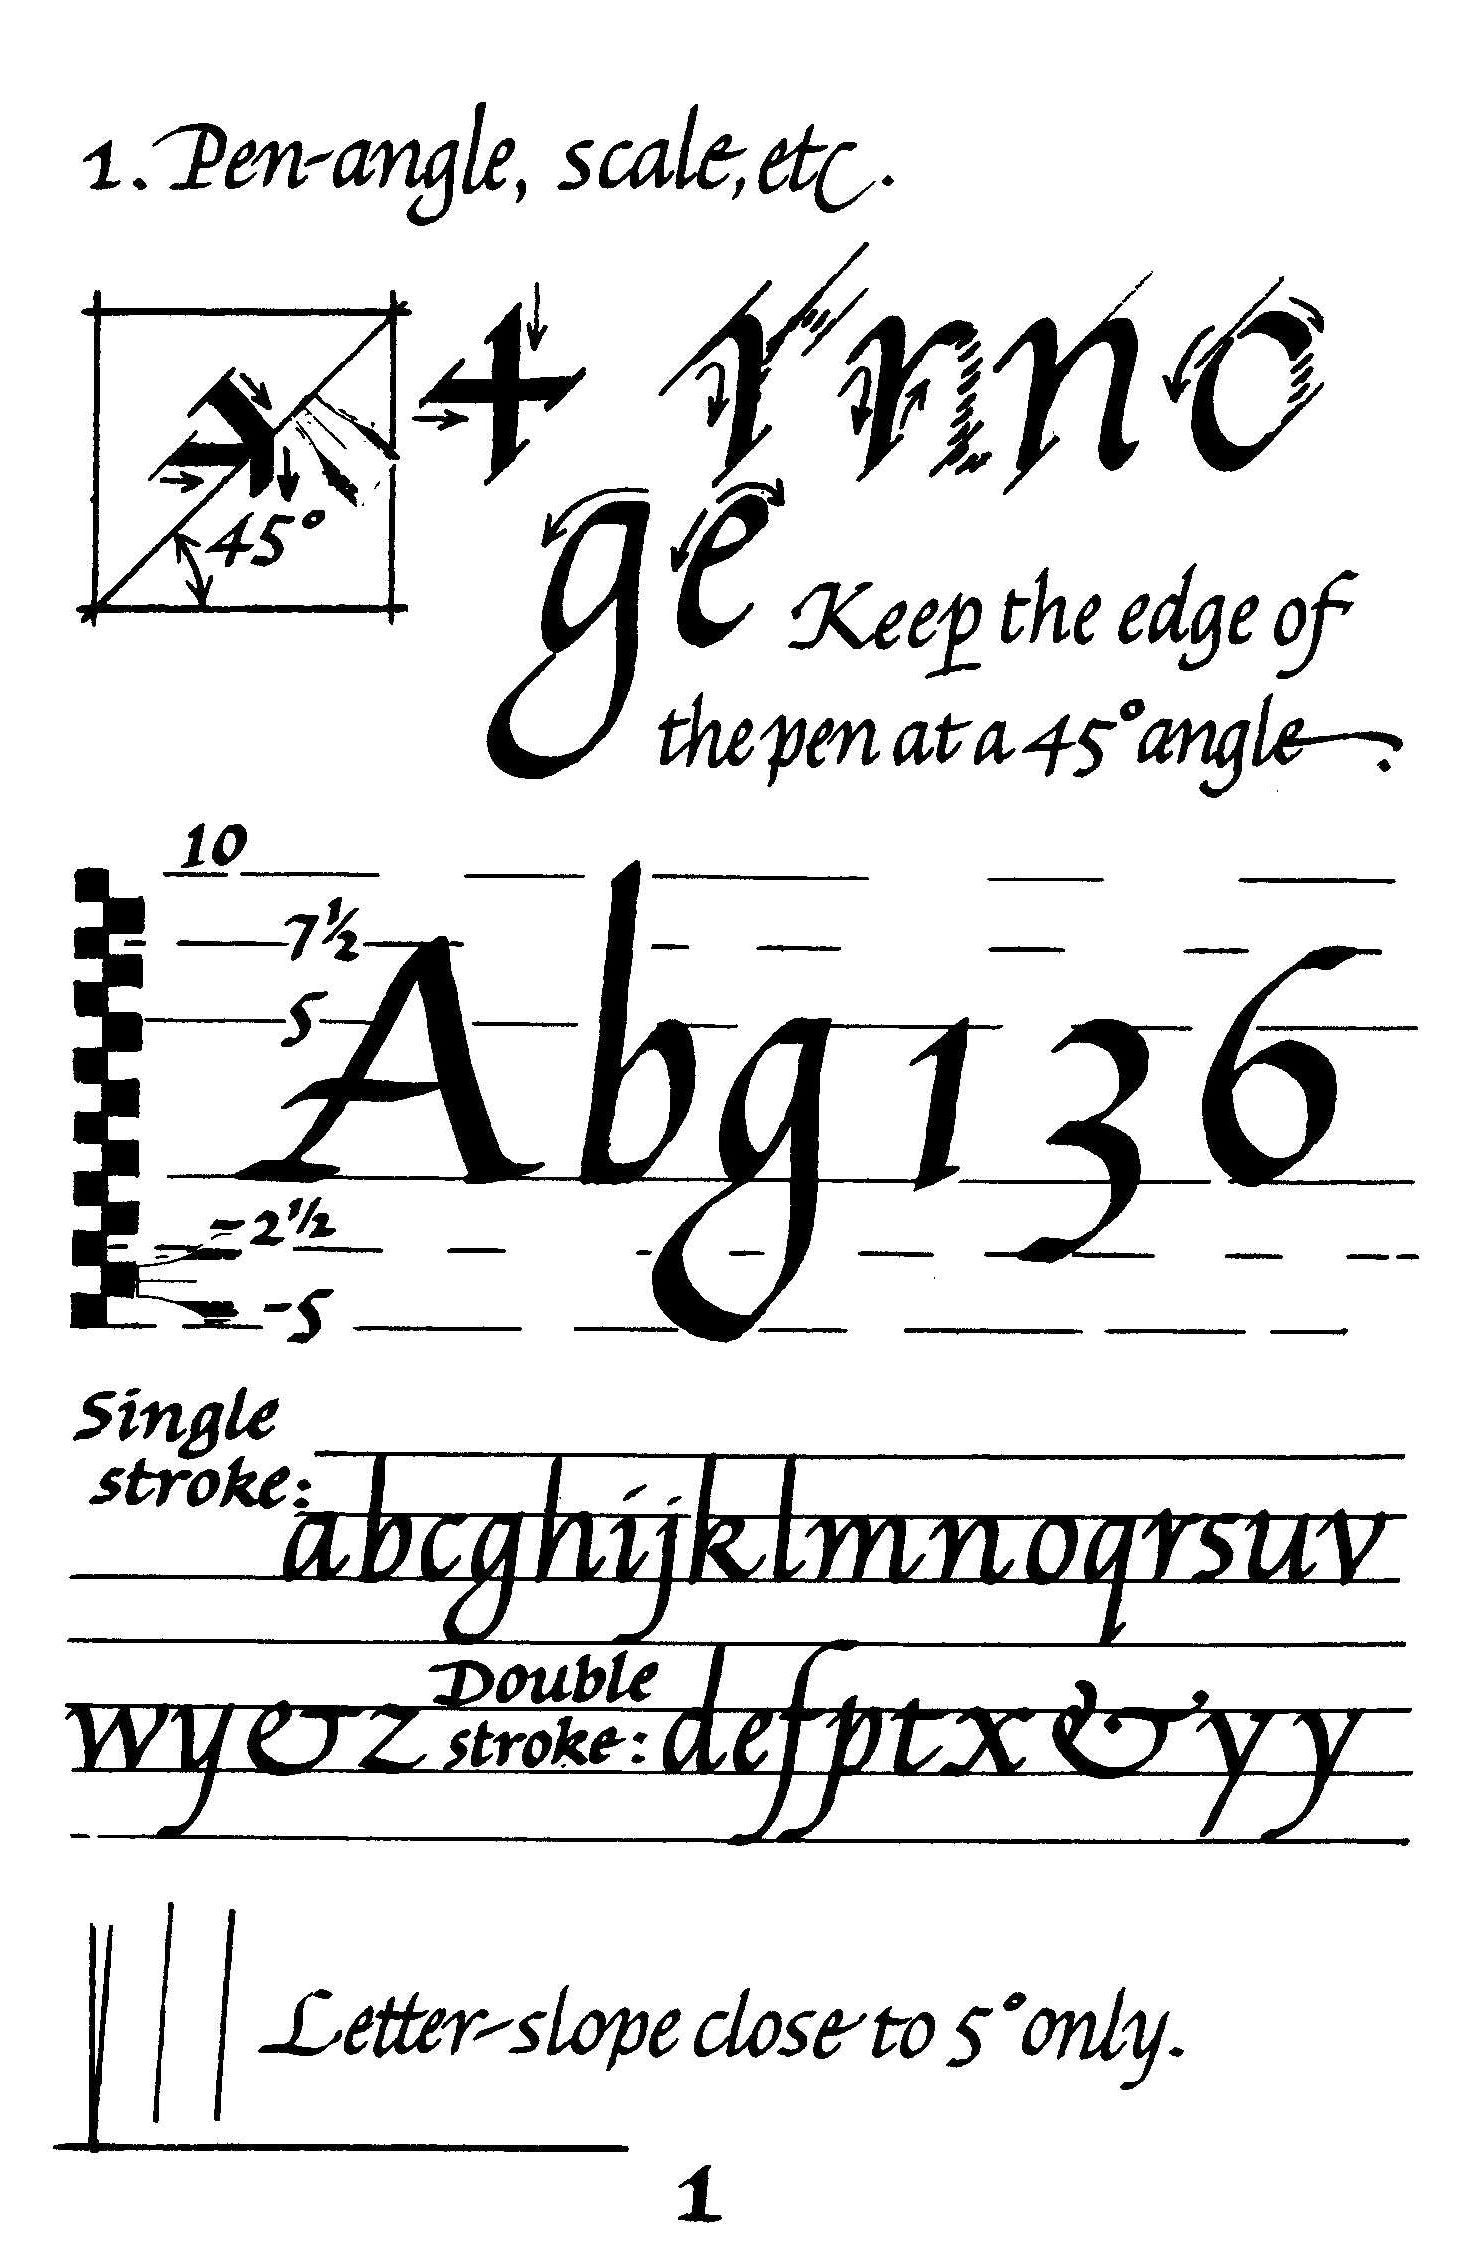 1. Pen-angle, scale, etc.
+ r n n o
45°
g e Keep the edge of
the pen at a 45° angle.
10
7½
5
A b g 1 3 6
=2½
-5
Single
stroke:
a b c g h i j k l m n o q r s u v
w y e z
Double
stroke: d e f p t x & y y
Letter-slope close to 5° only.
1